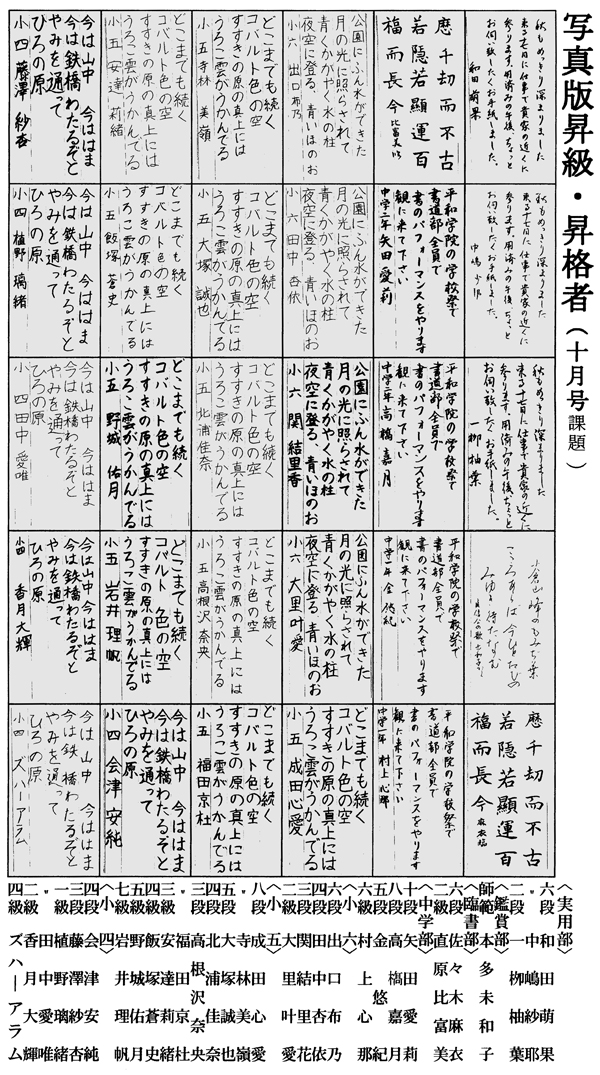 写真版昇級・昇格者(十月号課題)
秋もめっきり深まりました
来る十七日に仕事で貴家の近くに
参ります。用済みの午後、ちょっと
お伺い致したくお手紙しました。
和田萌果
歴千劫而不古
若隠若顯運百
福而長今
公園にふん水ができた
月の光に照らされて
青くかがやく水の柱
夜空に登る、青いほのお
小六 出口布乃
どこまでも続く
コバルト色の空
すすきの原の真上には
うろこ雲がうかんでる
小五 寺林 美嶺
どこまでも続く
コバルト色の空
すすきの原の真上には
うろこ雲がうかんでる
小五 安達 莉緒
今は山中 今ははま
今は鉄橋わたるぞと
やみを通って
ひろの原
小四 藤澤 紗杏
秋もめっきり深まりました
来る十七日に仕事で貴家の近くに
参ります。用済みの午後、ちょっと
お伺い致したくお手紙しました。
平和学院の学校祭で
書道部全員で
書のパフォーマンスをやります
観に来て下さい
中学二年 矢田愛莉
公園にふん水ができた
月の光に照らされて、
青くかがやく水の柱
夜空に登る、青いほのお
小六 田中 杏依
どこまでも続く
コバルト色の空
すすきの原の真上には
うろこ雲がうかんでる
小五 大塚 誠也
どこまでも続く
コバルト色の空
すすきの原の真上には
うろこ雲がうかんでる
小五 飯塚 蒼史
今は山中 今ははま
今は鉄橋わたるぞと
やみを通って
ひろの原
小四 植野 璃緒
秋もめっきり深まりました
来る十七日に仕事で貴家の近くに
参ります。用済みの午後、ちょっと
お伺い致したくお手紙しました。
一栁柚葉
平和学院の学校祭で
書道部全員で
書のパフォーマンスをやります
観に来て下さい
中学二年 高橋嘉月
公園にふん水ができた
月の光に照らされて
青くかがやく水の柱
夜空に登る、青いほのお
小六 関 結里香
どこまでも続く
コバルト色の空
すすきの原の真上には
うろこ雲がうかんでる
小五 北浦佳奈
どこまでも続く
コバルト色の空
すすきの原の真上には
うろこ雲がうかんでる
小五 野城 佑月
今は山中 今ははま
今は鉄橋わたるぞと
やみを通って
ひろの原
小四 田中 愛唯
小倉山峰のもみぢ葉
こころあらば今ひとたびの
みゆき待たなむ
平和学院の学校祭で
書道部全員で
書のパフォーマンスをやります
観に来て下さい
中学一年 金 悠紀
公園にふん水ができた
月の光に照らされて、
青くかがやく水の柱
夜空に登る、青いほのお
小六 大里叶愛
どこまでも続く
コバルト色の空
すすきの原の真上には
うろこ雲がうかんでる
小五 高根沢奈央
どこまでも続く
コバルト色の空
すすきの原の真上には
うろこ雲がうかんでる
小五 岩井理帆
今は山中 今ははま
今は鉄橋わたるぞと
やみを通って
ひろの原
小四 香月大輝
歴千劫而不古
若隠若顯運百
福而長今
平和学院の学校祭で
書道部全員で
書のパフォーマンスをやります
観に来て下さい
中学一年 村上心那
どこまでも続く
コバルト色の空
すすきの原の真上には
うろこ雲がうかんでる
小五 成田心愛
どこまでも続く
コバルト色の空
すすきの原の真上には
うろこ雲がうかんでる
小五 福田京杜
今は山中 今ははま
今は鉄橋わたるぞと
やみを通って
ひろの原
小四 会津 安純
今は山中 今ははま
今は鉄橋わたるぞと
やみを通って
ひろの原
小四 ズハーアラム
〈実用部〉
六段 和田萌果
二段 中嶋紗耶
〃 一栁柚葉
〈鑑賞部〉
師範 本多未和子
〈臨書部〉
六段 佐々木麻衣
二級 直原比富美
〈中学部〉
十段 矢田愛莉
八段 高槗嘉月
五級 金悠紀
六級 村上心那
〈小六〉
六段 出口布乃
四段 田中杏依
三級 関結里花
二級 大里叶愛
〈小五〉
八段 成田心愛
〃 寺林美嶺
五段 大塚誠也
四段 北浦佳奈
三段 高根沢奈央
〃 福田京杜
三級 安達莉緒
四級 飯塚蒼史
五級 野城佑月
七級 岩井理帆
〈小四〉
四段 会津安純
三段 藤澤紗杏
一級 植野璃緒
〃 田中愛唯
二級 香月大輝
四級 ズハーアラム